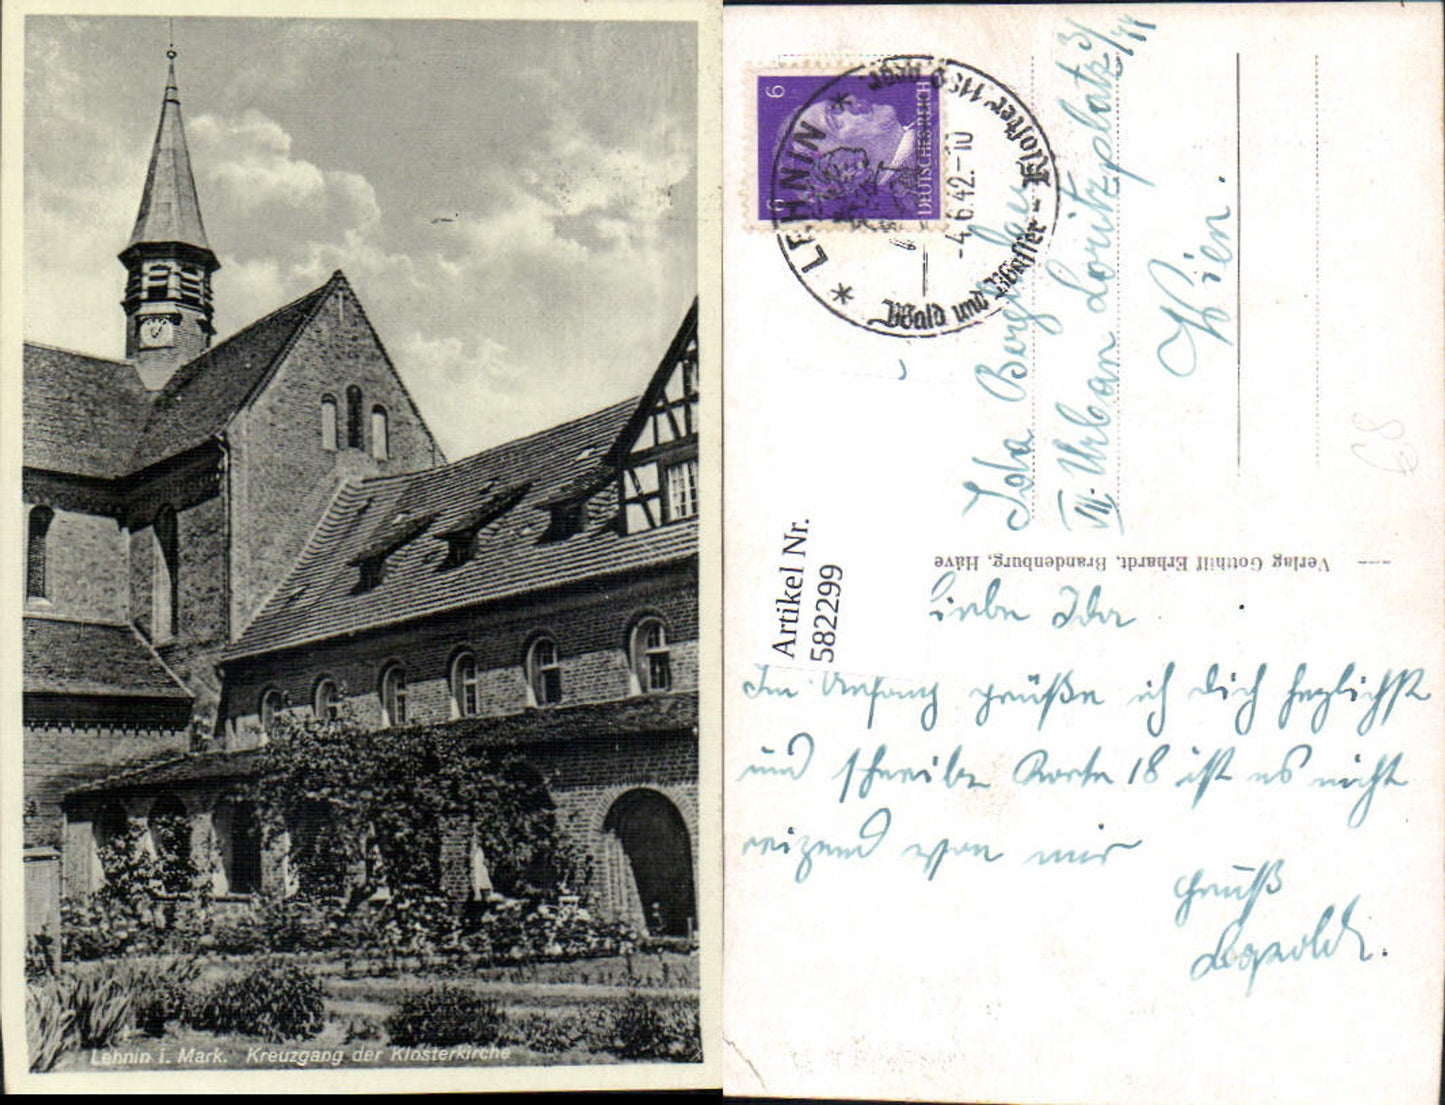 Lehnin i. Mark. Kreuzgang der Klosterkirche
6
6
DEUTSCHES REICH
* LEHNIN *
-4.6.42.-10
Wald und Wasser - Kloster 1180 gegr.
Ida
VII. Urban Loritzplatz 3/
Wien.
68
Artikel Nr.
582299
Verlag Gotthilf Erhardt, Brandenburg, Have
Liebe Ida
Im Anfang grüße ich dich herzlichst
und schreibe Karte 18 ist es nicht
reizend von mir
Gruß
Leopold.